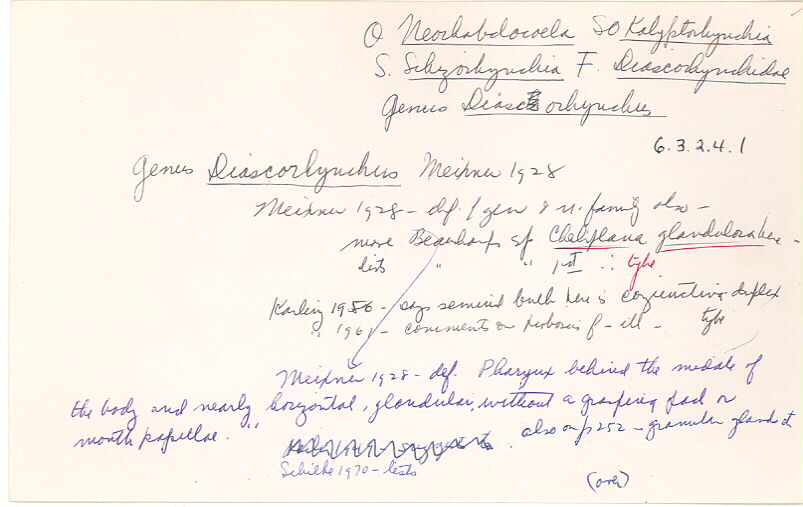 O Neorhabdocoela SO Kalyptorhynchia
S. Schizorhynchia F. Diascorhynchidae
Genus Diascorhynchus
6.3.2.4.1
Genus Diascorhynchus Meixner 1928
Meixner 1928 - def. of gen & n. family also -
move Beauchamp's sp Cheliplana glandulosa here -
lists " " 1st ∴ type
Karling 1956 - says seminal bulb here is conjunctiva duplex
" 1961 - comments on proboscis f - ill - type
Meixner 1928 - def. Pharynx behind the middle of
the body and nearly horizontal, glandular, without a grasping pad or
mouth papillae." also on p 252 - granular gland
Schilke 1970 - lists
(over)